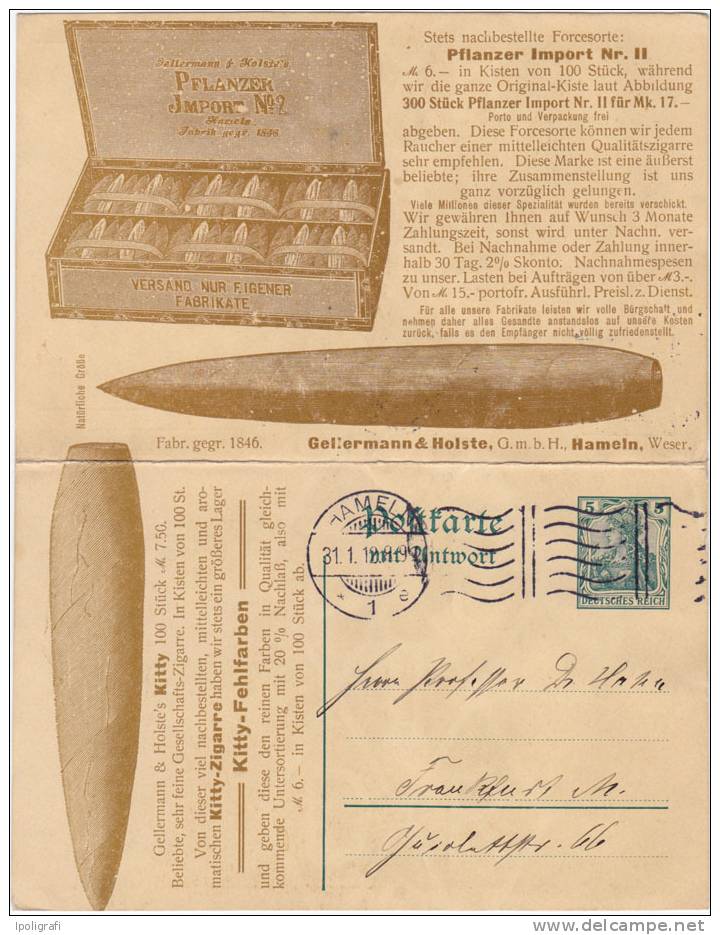 Gellermann & Holste's
PFLANZER
IMPORT No 2
Hameln
Fabrik gegr. 1846
VERSAND NUR EIGENER
FABRIKATE
Stets nachbestellte Forcesorte:
Pflanzer Import Nr. II
M. 6.— in Kisten von 100 Stück, während
wir die ganze Original-Kiste laut Abbildung
300 Stück Pflanzer Import Nr. II für Mk. 17.—
Porto und Verpackung frei
abgeben. Diese Forcesorte können wir jedem
Raucher einer mittelleichten Qualitätszigarre
sehr empfehlen. Diese Marke ist eine äußerst
beliebte; ihre Zusammenstellung ist uns
ganz vorzüglich gelungen.
Viele Millionen dieser Spezialität wurden bereits verschickt.
Wir gewähren Ihnen auf Wunsch 3 Monate
Zahlungszeit, sonst wird unter Nachn. ver-
sandt. Bei Nachnahme oder Zahlung inner-
halb 30 Tag. 2% Skonto. Nachnahmespesen
zu unser. Lasten bei Aufträgen von über M 3.-
Von M. 15.- portofr. Ausführl. Preisl. z. Dienst.
Für alle unsere Fabrikate leisten wir volle Bürgschaft und
nehmen daher alles Gesandte anstandslos auf unsere Kosten
zurück, falls es den Empfänger nicht völlig zufriedenstellt.
Natürliche Größe
Fabr. gegr. 1846. Gellermann & Holste, G. m. b. H., Hameln, Weser.
Gellermann & Holste's Kitty 100 Stück M. 7.50.
Beliebte, sehr feine Gesellschafts-Zigarre. In Kisten von 100 St.
Von dieser viel nachbestellten, mittelleichten und aro-
matischen Kitty-Zigarre haben wir stets ein größeres Lager
Kitty-Fehlfarben
und geben diese den reinen Farben in Qualität gleich-
kommende Untersortierung mit 20 % Nachlaß, also mit
M. 6.— in Kisten von 100 Stück ab.
Postkarte
mit Antwort
HAMELN
31.1.1
* 1 c
5 5
DEUTSCHES REICH
Herrn Professor Dr Hahn
Frankfurt M.
66
Ipoligrafi
delcampe.net